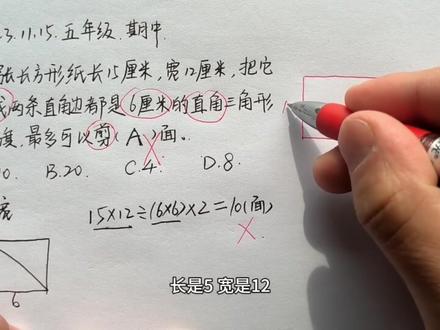 3.11.15.五年级.期中.
张长方形纸长15厘米,宽12厘米,把它
成两条直角边都是6厘米的直角三角形
最多可以剪(A)面。
B.20. C.4. D.8.
15×12÷(6×6)×2=10(面)
6
长是5 宽是12